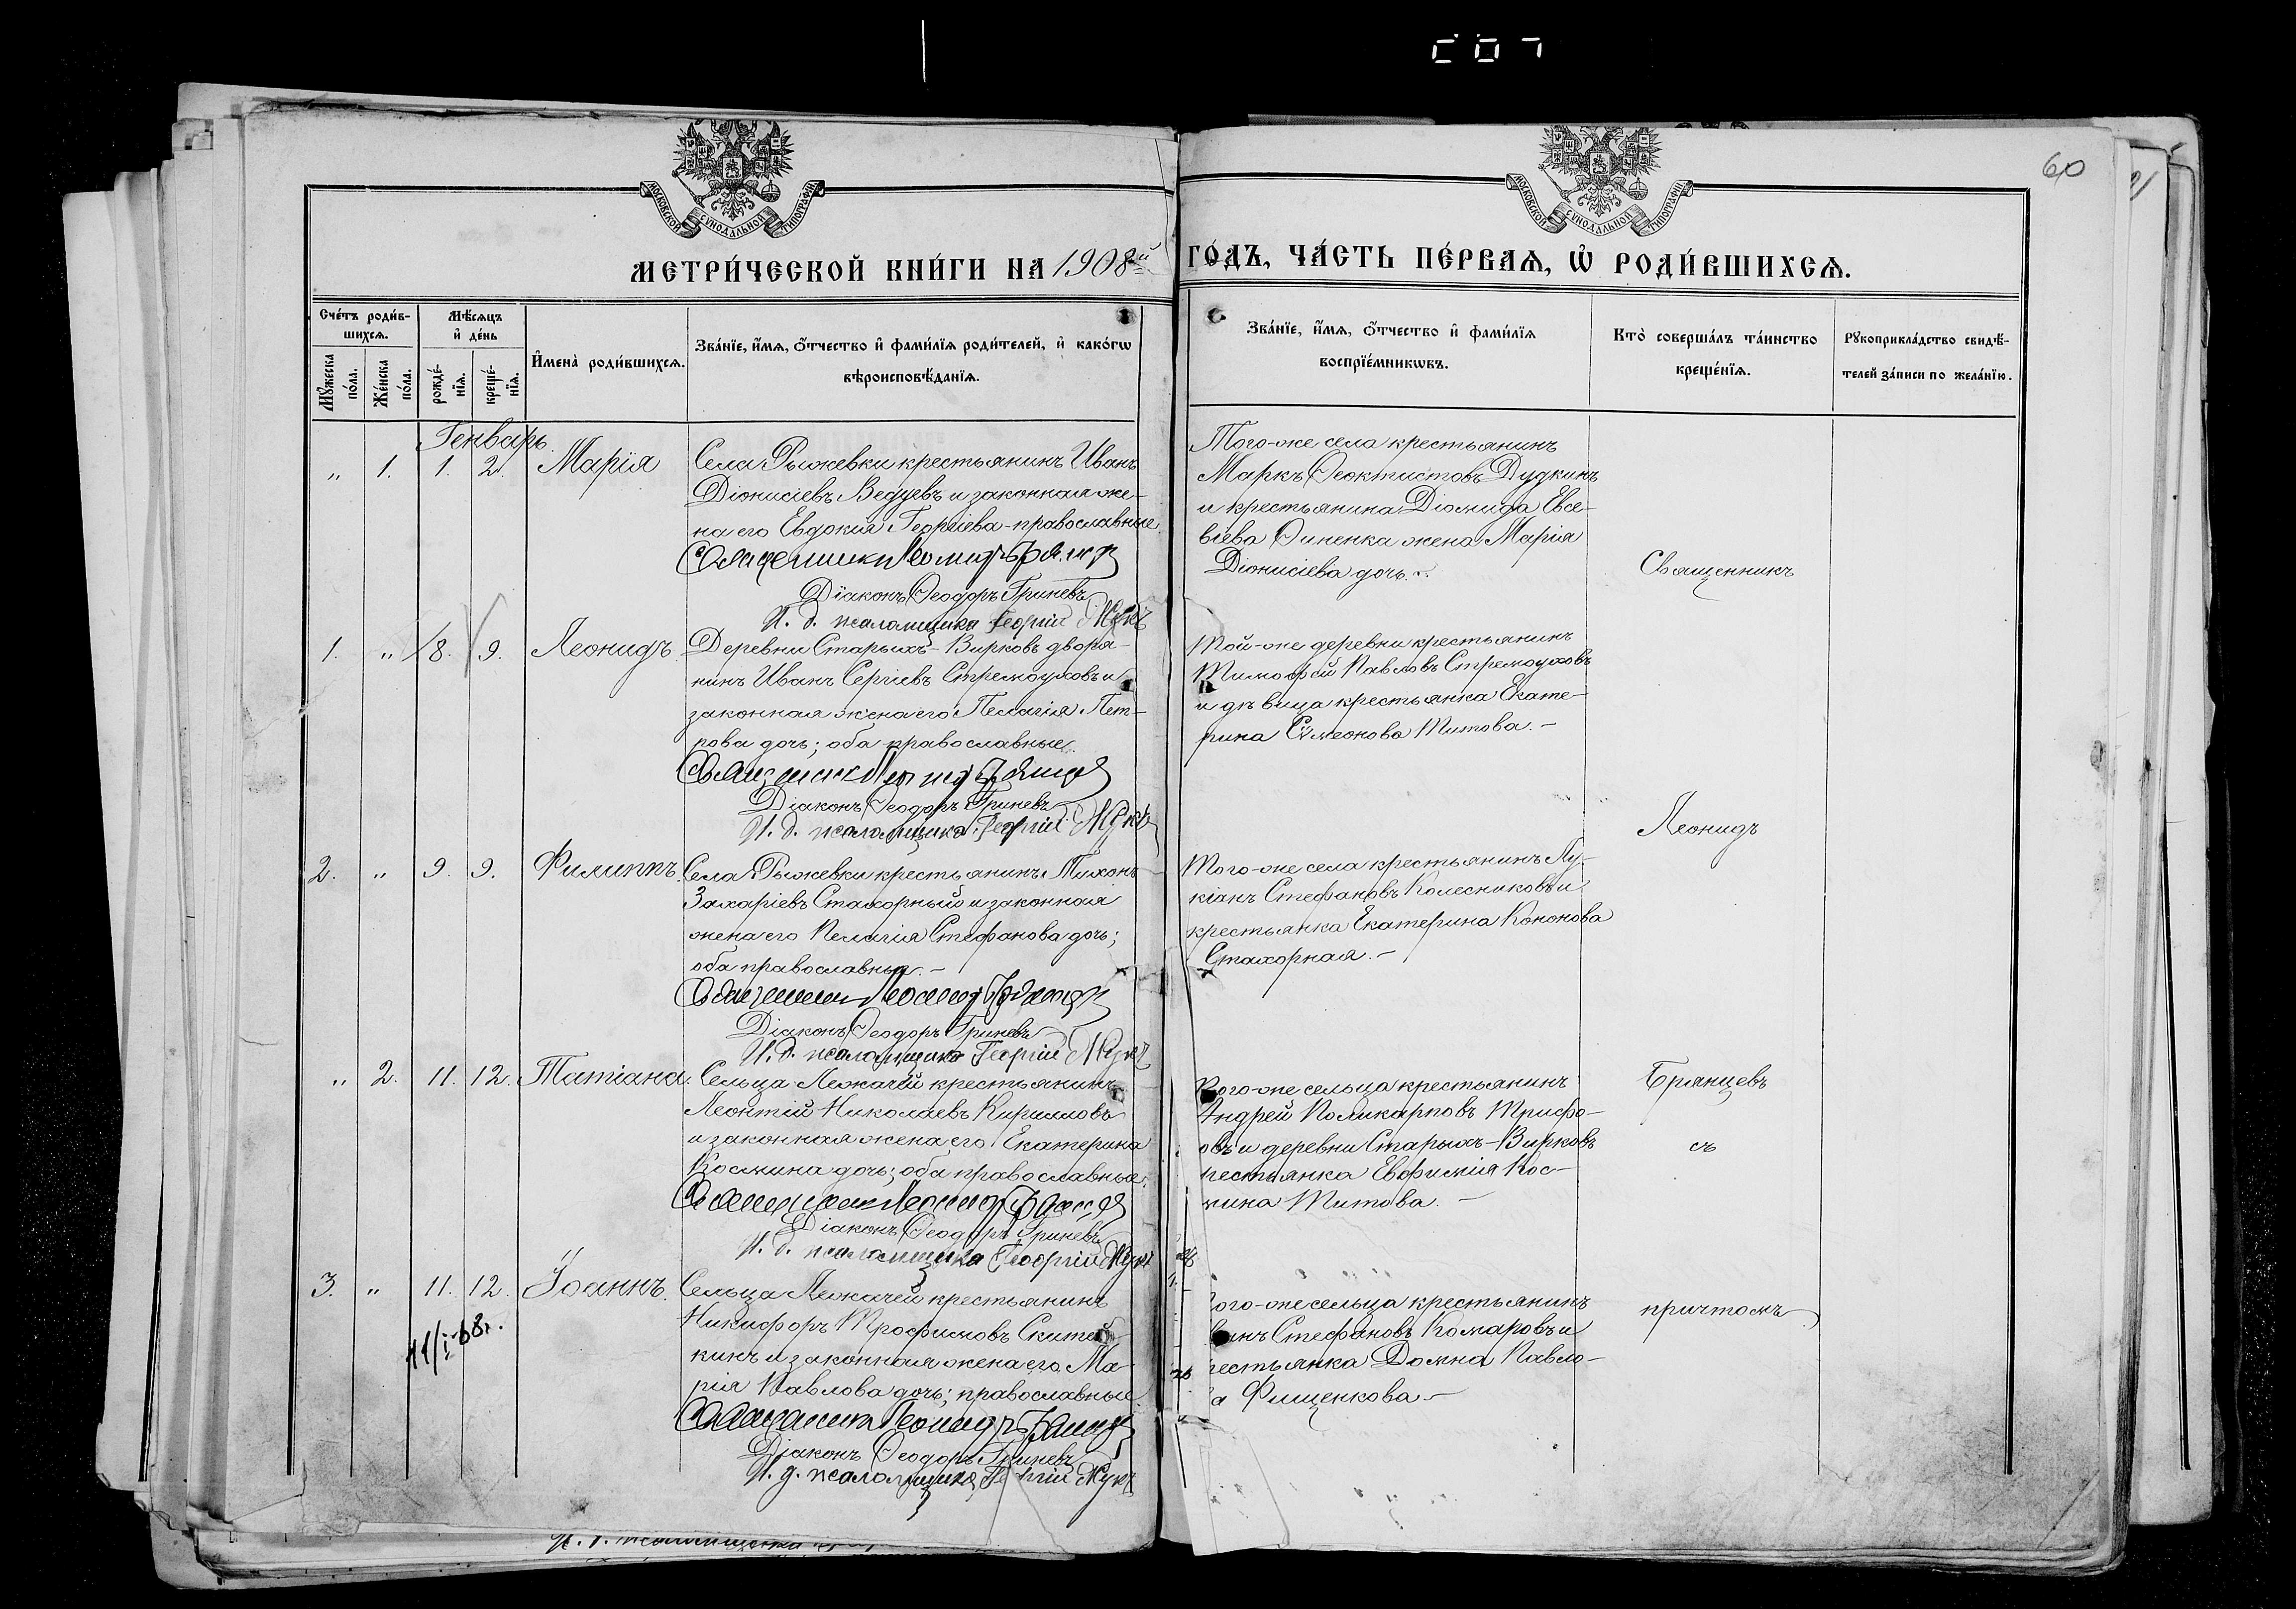 60
МОСКОВСКОЙ СѴНОДАЛЬНОЙ ТИПОГРАФІИ
МОСКОВСКОЙ СѴНОДАЛЬНОЙ ТИПОГРАФІИ
МЕТРИ́ЧЕСКОЙ КНИ́ГИ НА 1908й ГО́ДЪ, ЧА́СТЬ ПЕ́РВАѦ, Ѡ҆ РОДИ́ВШИХСѦ.
Сче́тъ роди́в-
шихсѧ.
Мꙋ́жеска
по́ла.
Же́нска
по́ла.
Мѣ́сѧцъ
и҆ де́нь
рожде́-
нїѧ.
креще́-
нїѧ.
И҆мена̀ роди́вшихсѧ.
Зва́нїе, и҆́мѧ, ѻ҆́тчество и҆ фами́лїѧ роди́телей, и҆ како́гѡ
вѣроисповѣ́данїѧ.
Зва́нїе, и҆́мѧ, ѻ҆́тчество и҆ фами́лїѧ
воспрїе́мникѡвъ.
Кто̀ соверша́лъ та́инство
креще́нїѧ.
Рꙋкоприкла́дство свидѣ́-
телей за́писи по жела́нїю.
Генварь
„ 1. 1. 2. Марія
Села Рыжевки крестьянинъ Иванъ
Діонисіевъ Ведуевъ и законная же-
на его Евдокія Георгіева - православные
Священникъ Леонидъ Брянцевъ
Діаконъ Ѳеодоръ Гриневъ
И. д. псаломщика Георгій Жукъ
Того-же села крестьянинъ
Маркъ Ѳеоктистовъ Дудкинъ
и крестьянина Діомида Евсе-
віева Оиненка жена Марія
Діонисіева дочь.
Священникъ
1. „ 8. 9. Леонидъ.
Деревни Старыхъ-Вирковъ дворя-
нинъ Иванъ Сергіевъ Стремоуховъ и
законная жена его Пелагія Пет-
рова дочь; оба православные.
Священникъ Леонидъ Брянцевъ
Діаконъ Ѳеодоръ Гриневъ
И. д. псаломщика Георгій Жукъ
Той-же деревни крестьянинъ
Тимофей Павловъ Стремоуховъ
и дѣвица крестьянка Екате-
рина Сѵмеонова Титова.-
Леонидъ
2. „ 9. 9. Филиппъ.
Села Рыжевки крестьянинъ Тихонъ
Захаріевъ Стахорный и законная
жена его Пелагія Стефанова дочь;
оба православны.-
Священникъ Леонидъ Брянцевъ
Діаконъ Ѳеодоръ Гриневъ
И. д. псаломщика Георгій Жукъ
Того-же села крестьянинъ Лу-
кіанъ Стефановъ Колесниковъ и
крестьянка Екатерина Кононова
Стахорная.-
„ 2. 11. 12. Татіана.
Сельца Лежачей крестьянинъ
Леонтій Николаевъ Кирилловъ
и законная жена его Екатерина
Космина дочь; оба православные.
Священникъ Леонидъ Брянцевъ
Діаконъ Ѳеодоръ Гриневъ
И. д. псаломщика Георгій Жукъ
Того-же сельца крестьянинъ
Андрей Поликарповъ Трифо-
овъ и деревни Старыхъ-Вирковъ
рестьянка Евфимія Кос-
мина Титова.-
Брянцевъ
съ
3. „ 11. 12. Іоаннъ.
11/I-68г.
Сельца Лежачей крестьянинъ
Никифоръ Трофимовъ Скитей-
кинъ и законная жена его Ма-
рія Павлова дочь; православные
Священникъ Леонидъ Брянцевъ
Діаконъ Ѳеодоръ Гриневъ
И. д. псаломщика Георгій Жукъ
ого-же сельца крестьянинъ
ванъ Стефановъ Комаровъ и
рестьянка Домна Павло-
а Фищенкова.-
причтомъ